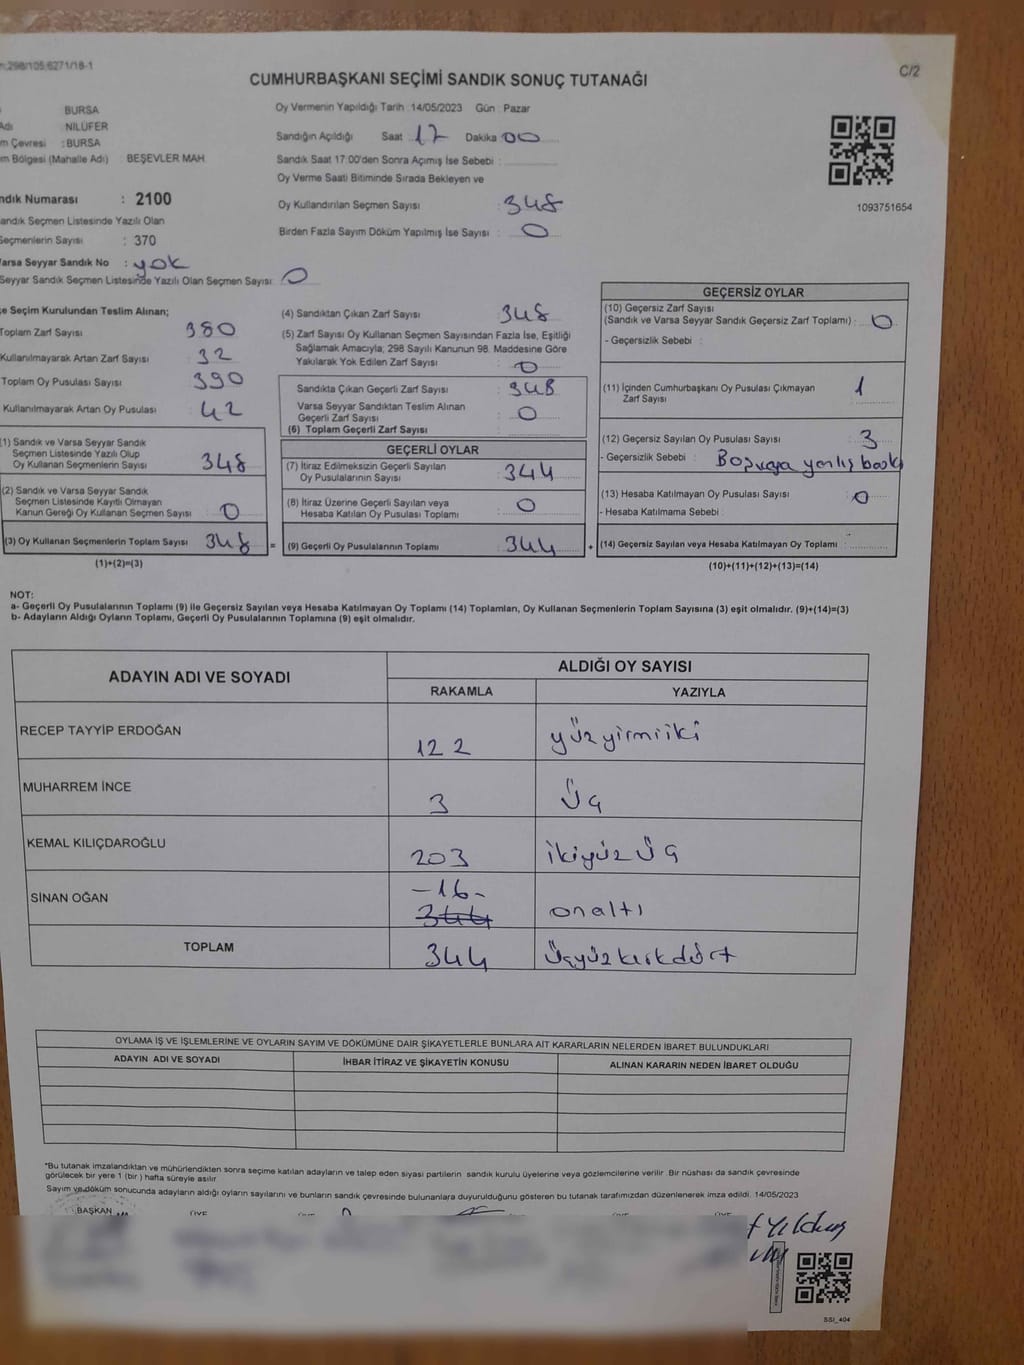 298/105:6271/18-1
C/2
CUMHURBAŞKANI SEÇİMİ SANDIK SONUÇ TUTANAĞI
BURSA
Adı NİLÜFER
m Çevresi : BURSA
m Bölgesi (Mahalle Adı) BEŞEVLER MAH.
ndık Numarası : 2100
andık Seçmen Listesinde Yazılı Olan
Seçmenlerin Sayısı : 370
arsa Seyyar Sandık No : yok
Seyyar Sandık Seçmen Listesinde Yazılı Olan Seçmen Sayısı: 0
Oy Vermenin Yapıldığı Tarih :14/05/2023 Gün : Pazar
Sandığın Açıldığı Saat : 17 Dakika 00
Sandık Saat 17:00'den Sonra Açımış İse Sebebi :
Oy Verme Saati Bitiminde Sırada Bekleyen ve
Oy Kullandırılan Seçmen Sayısı : 348
Birden Fazla Sayım Döküm Yapılmış İse Sayısı : 0
1093751654
e Seçim Kurulundan Teslim Alınan;
Toplam Zarf Sayısı 380
Kullanılmayarak Artan Zarf Sayısı 32
Toplam Oy Pusulası Sayısı 390
Kullanılmayarak Artan Oy Pusulası 42
(1) Sandık ve Varsa Seyyar Sandık
Seçmen Listesinde Yazılı Olup
Oy Kullanan Seçmenlerin Sayısı 348
(2) Sandık ve Varsa Seyyar Sandık
Seçmen Listesinde Kayıtlı Olmayan
Kanun Gereği Oy Kullanan Seçmen Sayısı 0
(3) Oy Kullanan Seçmenlerin Toplam Sayısı 348 =
(1)+(2)=(3)
(4) Sandıktan Çıkan Zarf Sayısı 348
(5) Zarf Sayısı Oy Kullanan Seçmen Sayısından Fazla İse, Eşitliği
Sağlamak Amacıyla, 298 Sayılı Kanunun 98. Maddesine Göre
Yakılarak Yok Edilen Zarf Sayısı : 0
Sandıkta Çıkan Geçerli Zarf Sayısı : 348
Varsa Seyyar Sandıktan Teslim Alınan
Geçerli Zarf Sayısı : 0
(6) Toplam Geçerli Zarf Sayısı :
GEÇERLİ OYLAR
(7) İtiraz Edilmeksizin Geçerli Sayılan
Oy Pusulalarının Sayısı : 344
(8) İtiraz Üzerine Geçerli Sayılan veya
Hesaba Katılan Oy Pusulası Toplamı : 0
(9) Geçerli Oy Pusulalarının Toplamı : 344 +
GEÇERSİZ OYLAR
(10) Geçersiz Zarf Sayısı
(Sandık ve Varsa Seyyar Sandık Geçersiz Zarf Toplamı) : 0
- Geçersizlik Sebebi :
(11) İçinden Cumhurbaşkanı Oy Pusulası Çıkmayan
Zarf Sayısı : 1
(12) Geçersiz Sayılan Oy Pusulası Sayısı : 3
- Geçersizlik Sebebi : yanlış
(13) Hesaba Katılmayan Oy Pusulası Sayısı : 0
- Hesaba Katılmama Sebebi :
(14) Geçersiz Sayılan veya Hesaba Katılmayan Oy Toplamı :
(10)+(11)+(12)+(13)=(14)
NOT:
a- Geçerli Oy Pusulalarının Toplamı (9) ile Geçersiz Sayılan veya Hesaba Katılmayan Oy Toplamı (14) Toplamları, Oy Kullanan Seçmenlerin Toplam Sayısına (3) eşit olmalıdır. (9)+(14)=(3)
b- Adayların Aldığı Oyların Toplamı, Geçerli Oy Pusulalarının Toplamına (9) eşit olmalıdır.
ADAYIN ADI VE SOYADI
ALDIĞI OY SAYISI
RAKAMLA YAZIYLA
RECEP TAYYİP ERDOĞAN 122 yüzyirmiiki
MUHARREM İNCE 3 üç
KEMAL KILIÇDAROĞLU 203 ikiyüz üç
SİNAN OĞAN -16- 344 onaltı
TOPLAM 344 üçyüzkırkdört
OYLAMA İŞ VE İŞLEMLERİNE VE OYLARIN SAYIM VE DÖKÜMÜNE DAİR ŞİKAYETLERLE BUNLARA AİT KARARLARIN NELERDEN İBARET BULUNDUKLARI
ADAYIN ADI VE SOYADI İHBAR İTİRAZ VE ŞİKAYETİN KONUSU ALINAN KARARIN NEDEN İBARET OLDUĞU
*Bu tutanak imzalandıktan ve mühürlendikten sonra seçime katılan adayların ve talep eden siyasi partilerin sandık kurulu üyelerine veya gözlemcilerine verilir. Bir nüshası da sandık çevresinde
görülecek bir yere 1 (bir) hafta süreyle asılır.
Sayım ve döküm sonucunda adayların aldığı oyların sayılarını ve bunların sandık çevresinde bulunanlara duyurulduğunu gösteren bu tutanak tarafımızdan düzenlenerek imza edildi. 14/05/2023
BAŞKAN ÜYE ÜYE ÜYE ÜYE
SSI_404